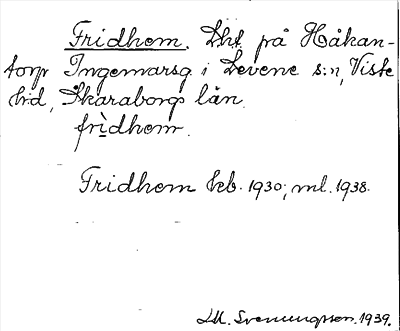 Fridhem. Lht på Håkan-
torp Ingemarsg. i Levene s:n, Viste
hd, Skaraborgs län.
frìdhem.
Fridhem kb. 1930; ml. 1938.
Svenungsson. 1939.